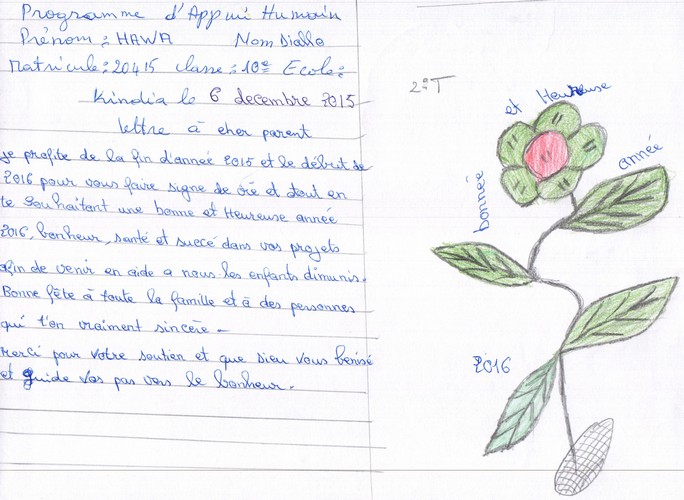 Programme d'Appui Humain
Prénom : HAWA Nom Diallo
Matricule : 20415 classe : 10e Ecole :
Kindia le 6 decembre 2015
lettre à cher parent
je profite de la fin d'année 2015 et le début de
2016 pour vous faire signe de vie et tout en
te souhaitant une bonne et Heureuse année
2016, bonheur, santé et succé dans vos projets
afin de venir en aide a nous les enfants dimunis.
Bonne fête à toute la famille et à des personnes
qui t'on vraiment sincère -
Merci pour votre soutien et que dieu vous benisé
et guide vos pas vers le bonheur.
2e T
bonnée
et Heureuse
année
2016